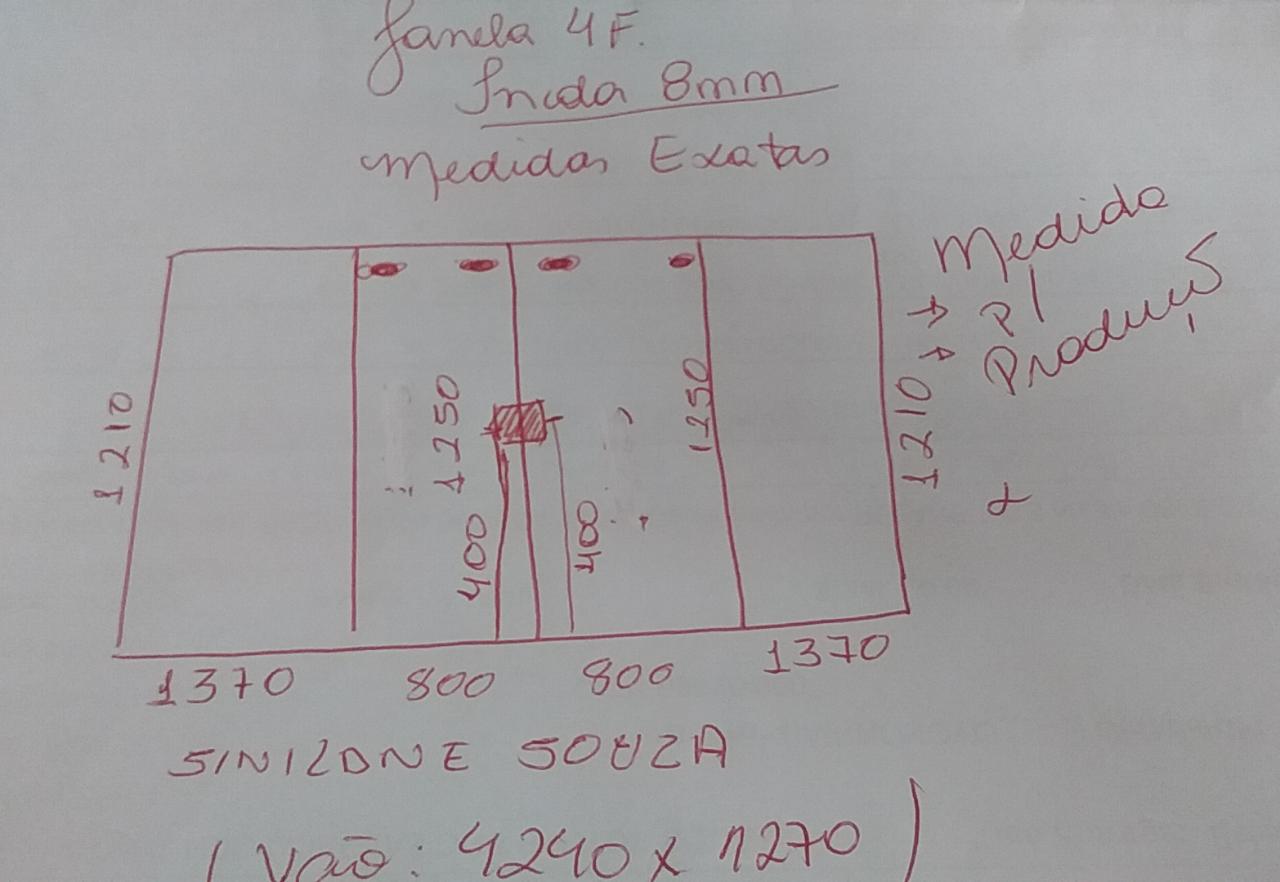 Janela 4F.
Incida 8mm
Medidas Exatas
Medida
p/
Produção
1210
1250
1250
1210
400
400
1370 800 800 1370
SINILDNE SOUZA
( Vão: 4240 x 1270 )